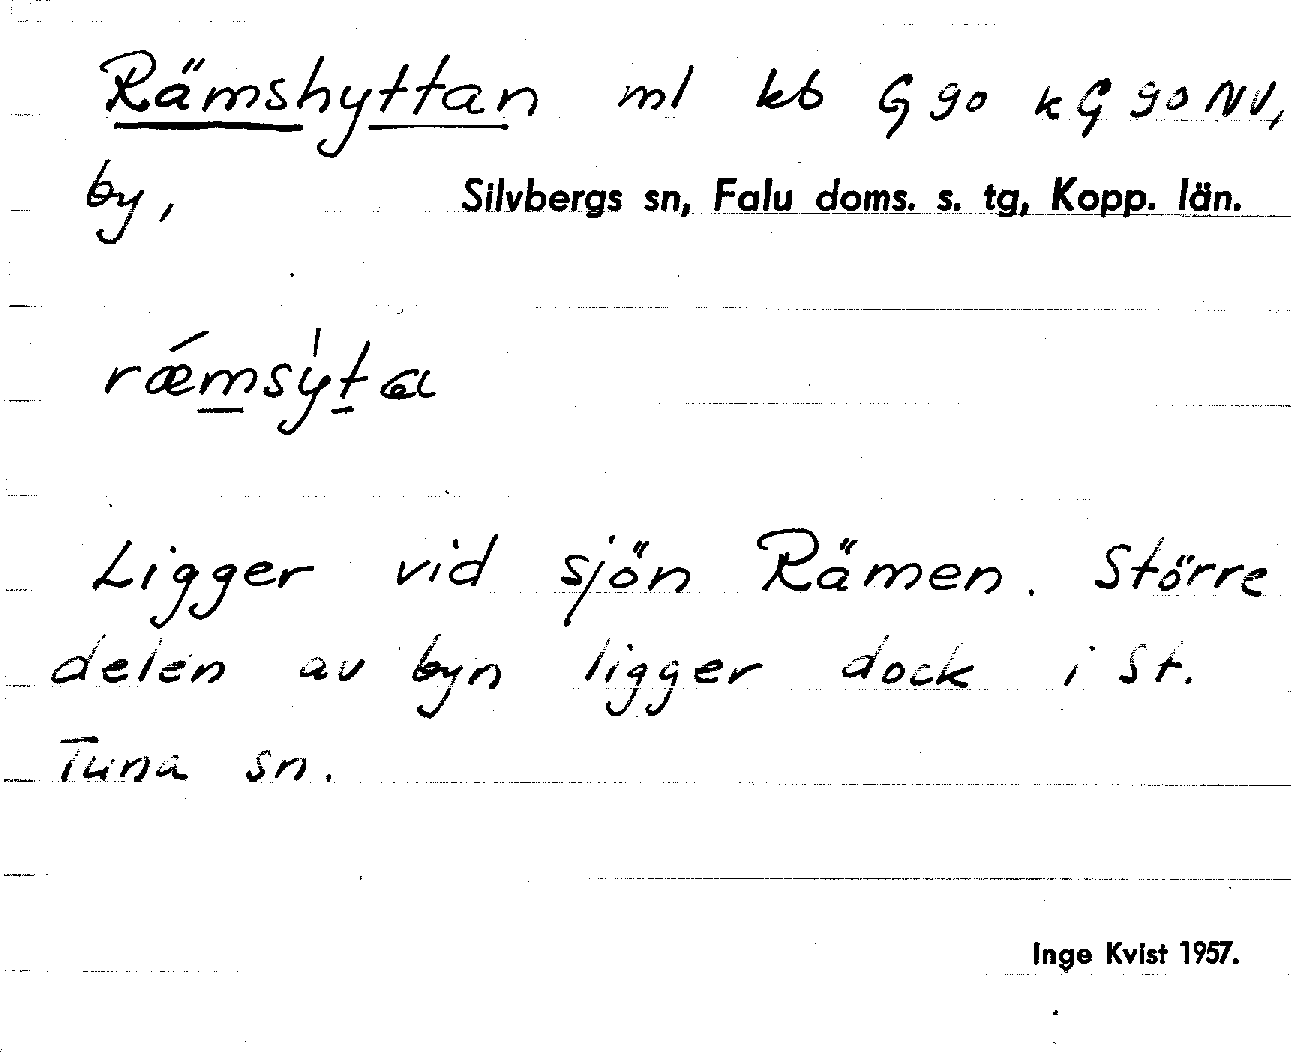 Rämshyttan ml kb G 90 k G 90 NV,
by, Silvbergs sn, Falu doms. s. tg, Kopp. län.
rǽmsy̍ta
Ligger vid sjön Rämen. Större
delen av byn ligger dock i St.
Tuna sn.
Inge Kvist 1957.